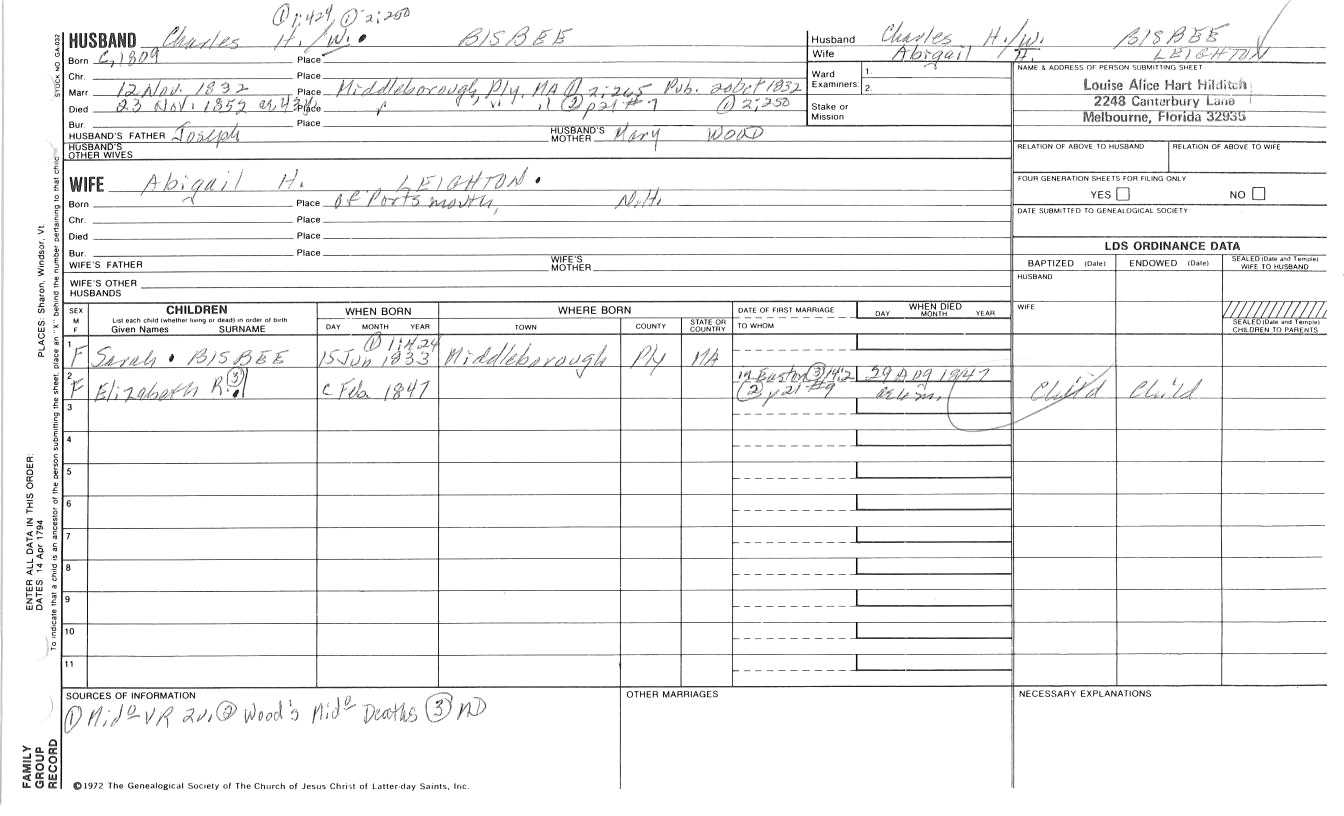 ① 1:424, ① 2:250
HUSBAND Charles H./W. BISBEE
Born C, 1809 Place
Chr. Place
Marr 12 Nov. 1832 Place Middleborough, Ply. MA ① 2:265 Pub. 20 Oct 1832
Died 23 Nov. 1852 Place " " ② p21 #7 ① 2:250
Bur. Place
HUSBAND'S FATHER Joseph HUSBAND'S MOTHER Mary WOOD
HUSBAND'S OTHER WIVES
WIFE Abigail H. LEIGHTON
Born Place of Portsmouth, N.H.
Chr. Place
Died Place
Bur. Place
WIFE'S FATHER WIFE'S MOTHER
WIFE'S OTHER HUSBANDS
Husband Charles H./W. BISBEE
Wife Abigail H. LEIGHTON
Ward Examiners: 1.
2.
Stake or Mission
NAME & ADDRESS OF PERSON SUBMITTING SHEET
Louise Alice Hart Hilditch
2248 Canterbury Lane
Melbourne, Florida 32935
RELATION OF ABOVE TO HUSBAND RELATION OF ABOVE TO WIFE
FOUR GENERATION SHEETS FOR FILING ONLY
YES NO
DATE SUBMITTED TO GENEALOGICAL SOCIETY
LDS ORDINANCE DATA
BAPTIZED (Date) ENDOWED (Date) SEALED (Date and Temple) WIFE TO HUSBAND
HUSBAND
WIFE
SEALED (Date and Temple) CHILDREN TO PARENTS
SEX M F
CHILDREN
List each child (whether living or dead) in order of birth
Given Names SURNAME
WHEN BORN
DAY MONTH YEAR
WHERE BORN
TOWN COUNTY STATE OR COUNTRY
DATE OF FIRST MARRIAGE
TO WHOM
WHEN DIED
DAY MONTH YEAR
① 1:424
1 F Sarah BISBEE 15 Jun 1833 Middleborough Ply MA
2 F Elizabeth R. ③ c Feb. 1847 in Easton ③ 14:2 29 Aug 1847 Child Child
② p21 #9 ae 6 m.
3
4
5
6
7
8
9
10
11
SOURCES OF INFORMATION
① Mida VR 2v, ② Wood's Mida Deaths ③ MD
OTHER MARRIAGES
NECESSARY EXPLANATIONS
©1972 The Genealogical Society of The Church of Jesus Christ of Latter-day Saints, Inc.
STOCK NO. GA-032
PLACES: Sharon, Windsor, Vt.
ENTER ALL DATA IN THIS ORDER:
DATES: 14 Apr 1794
To indicate that a child is an ancestor of the person submitting the sheet, place an "X" behind the number pertaining to that child.
FAMILY GROUP RECORD